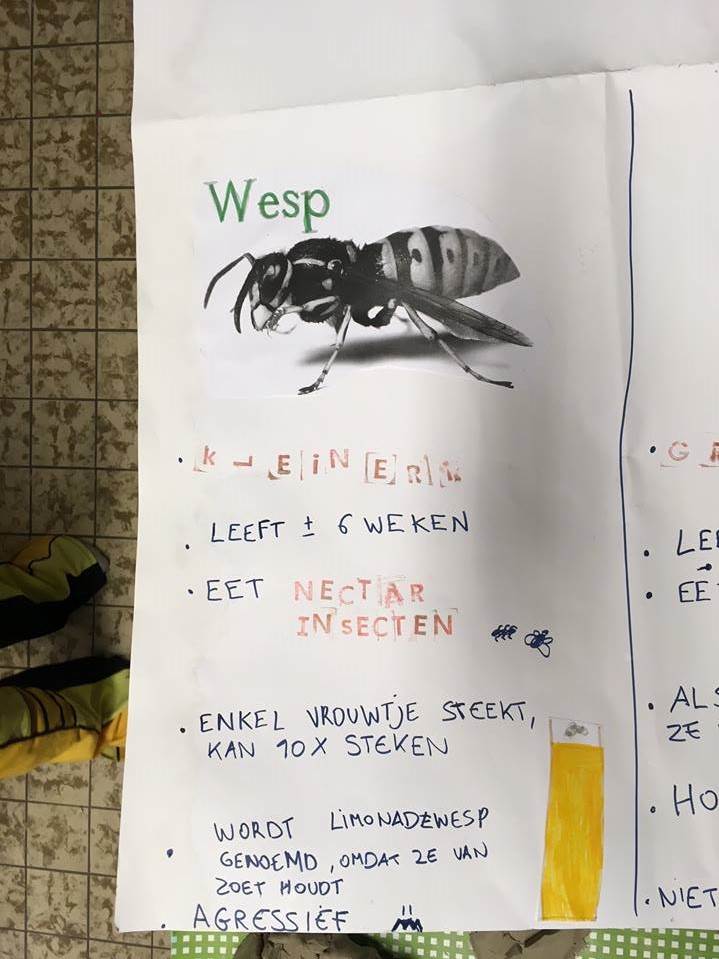 Wesp
• KLEINER
• LEEFT ± 6 WEKEN
• EET NECTAR
INSECTEN
• ENKEL VROUWTJE STEEKT,
KAN 10X STEKEN
• WORDT LIMONADEWESP
GENOEMD, OMDAT ZE VAN
ZOET HOUDT
• AGRESSIEF
• LE
• EE
• ALS
ZE
• HO
• NIET